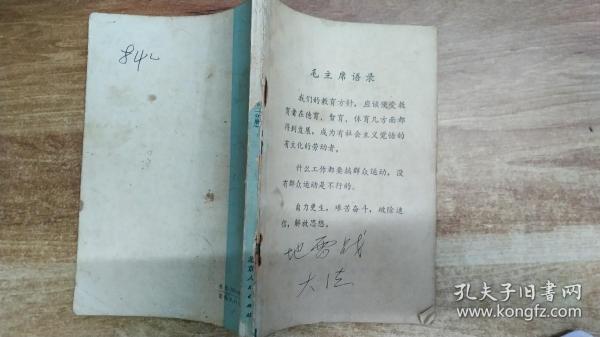 84乙
毛主席语录
我们的教育方针，应该使受教
育者在德育、智育、体育几方面都
得到发展，成为有社会主义觉悟的
有文化的劳动者。
什么工作都要搞群众运动，没
有群众运动是不行的。
自力更生，艰苦奋斗，破除迷
信，解放思想。
地雷战
大法
北京人民出版社
孔夫子旧书网
www.kongfz.com